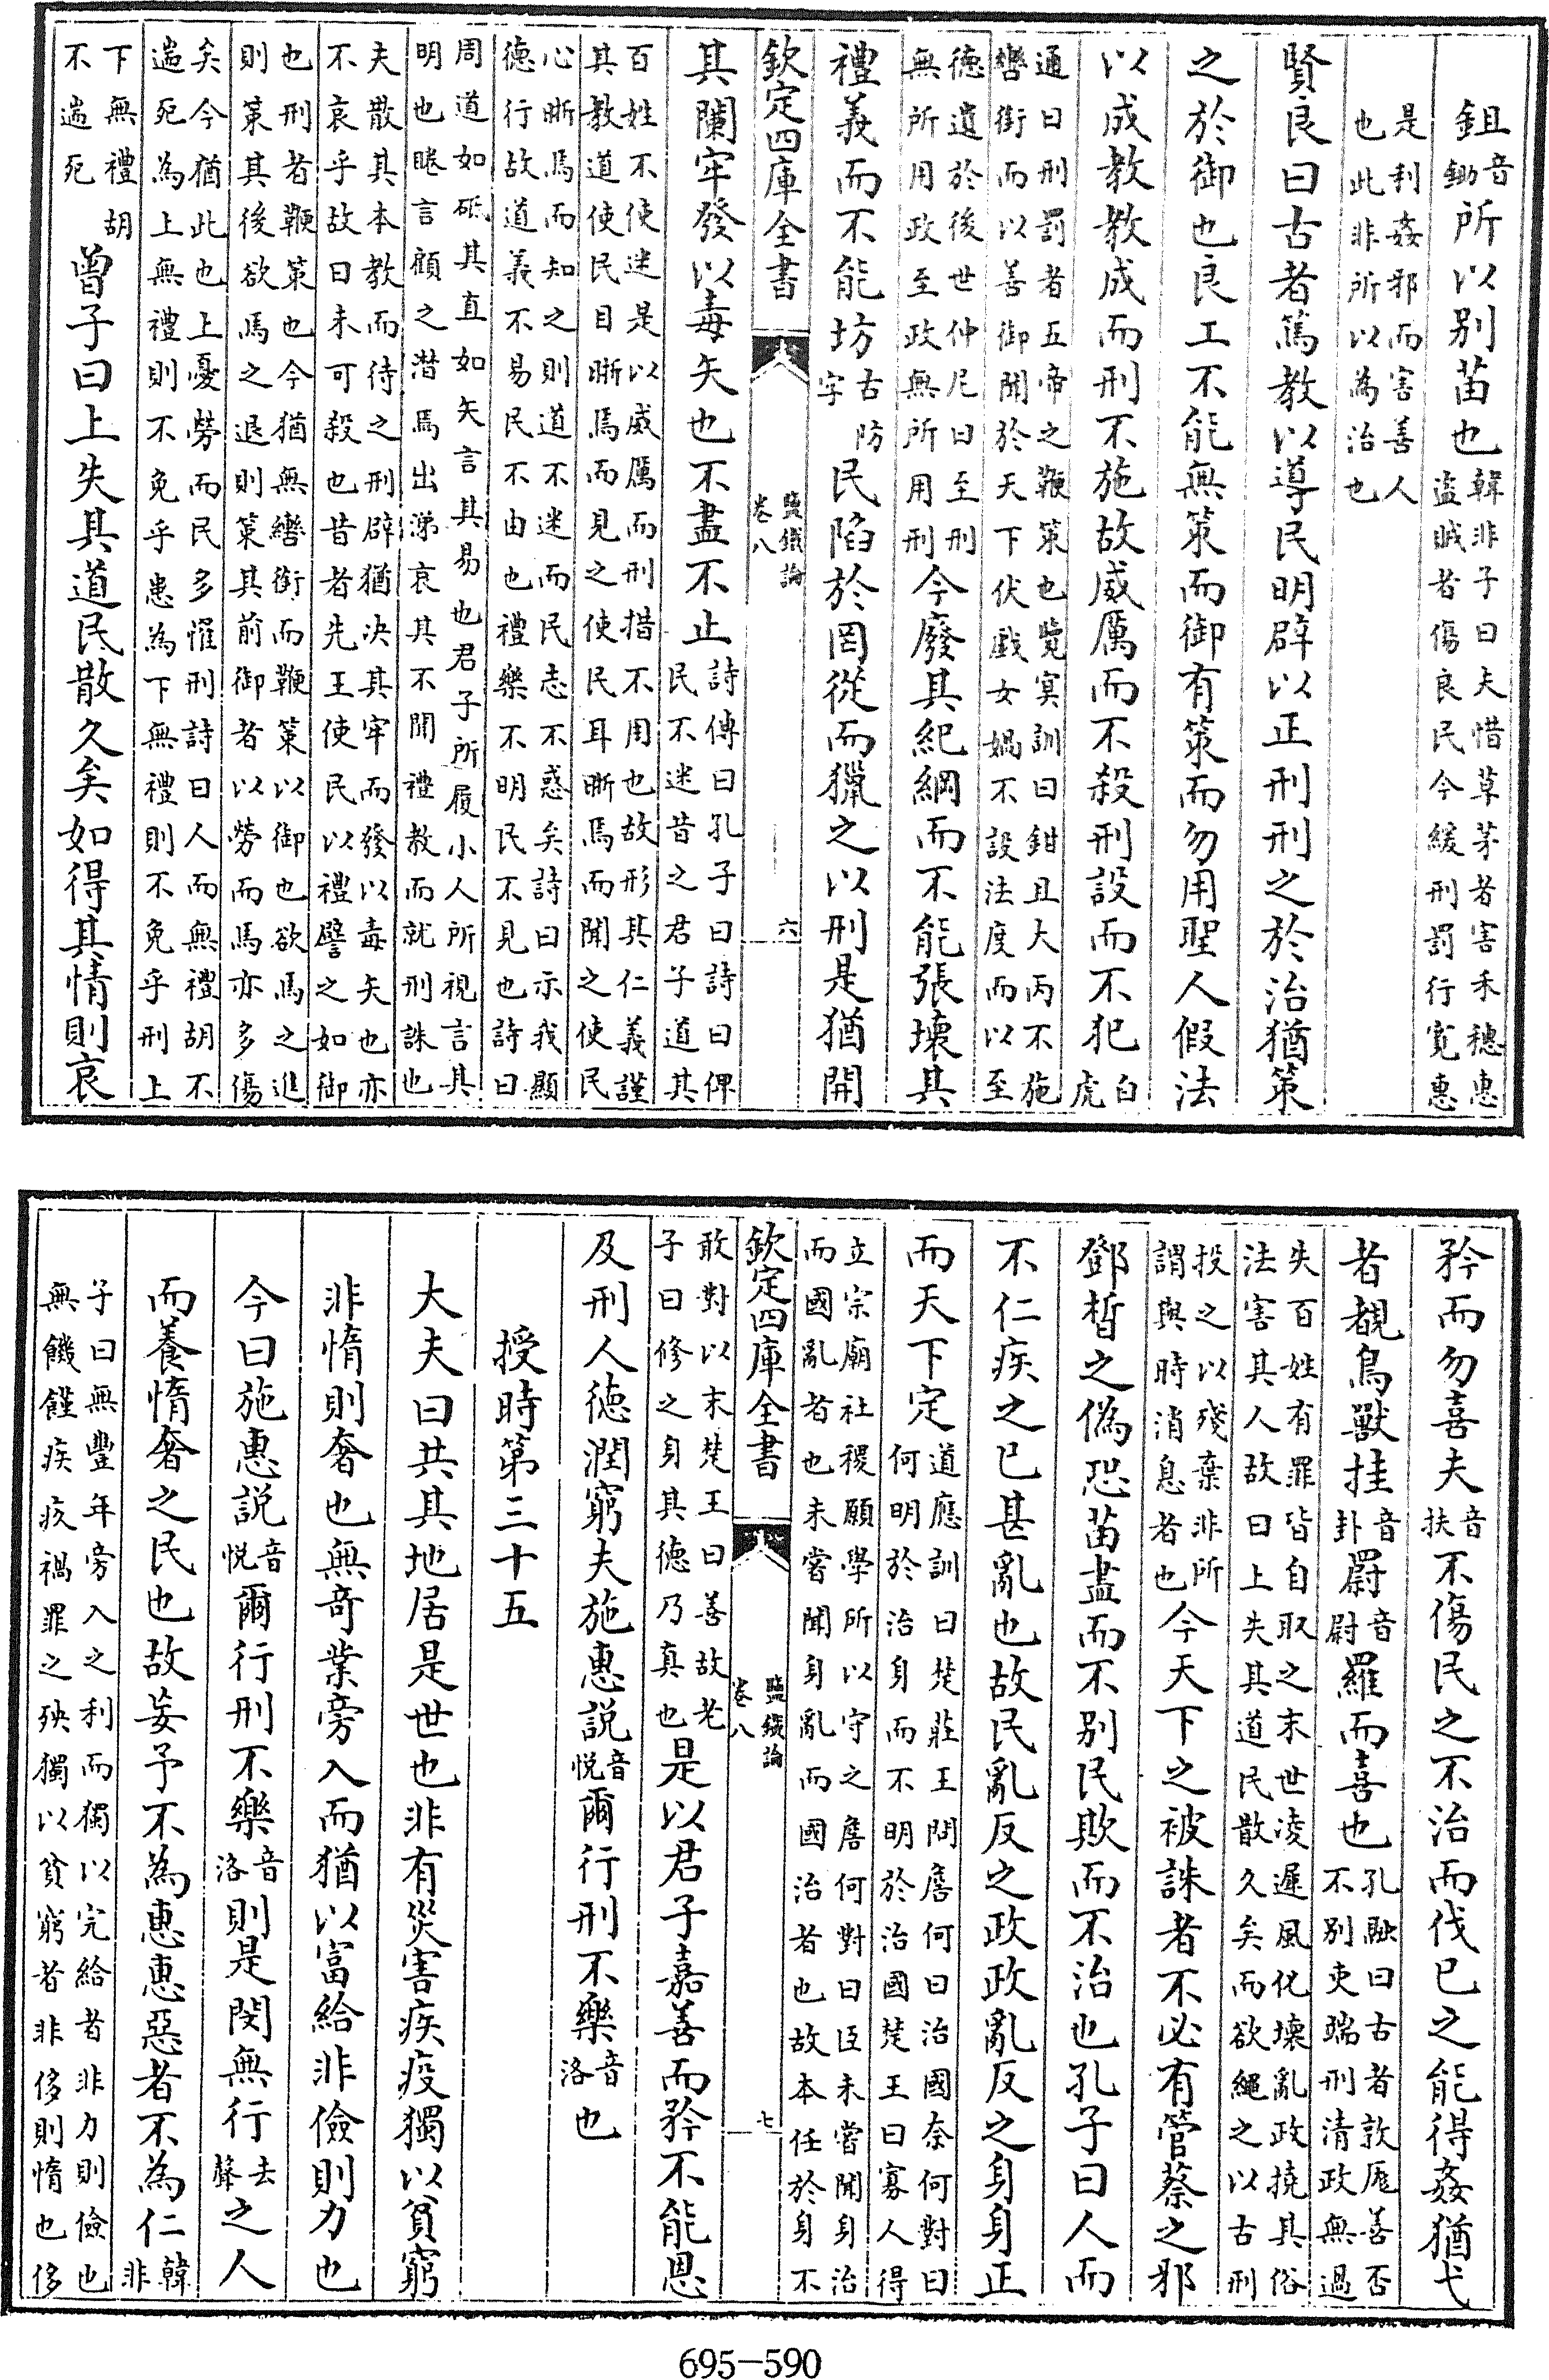 鉏音鋤所以别苗也韓非子曰夫惜草茅者害禾穗惠盜賊者傷良民今緩刑罰行寛惠
是利姦邪而害善人也此非所以為治也
賢良曰古者篤教以導民明辟以正刑刑之於治猶策
之於御也良工不能無策而御有策而勿用聖人假法
以成教教成而刑不施故威厲而不殺刑設而不犯白虎
通曰刑罰者五帝之鞭策也覽冥訓曰鉗且大丙不施轡銜而以善御聞於天下伏戲女媧不設法度而以至
德遺於後世仲尼曰至刑無所用政至政無所用刑今廢其紀綱而不能張壞其
禮義而不能坊古防字民陷於罔從而獵之以刑是猶開
欽定四庫全書 鹽鐵論 卷八 六
其闌牢發以毒矢也不盡不止詩傳曰孔子曰詩曰俾民不迷昔之君子道其
百姓不使迷是以威厲而刑措不用也故形其仁義謹其教道使民目晣焉而見之使民耳晣焉而聞之使民
心晣焉而知之則道不迷而民志不惑矣詩曰示我顯德行故道義不易民不由也禮樂不明民不見也詩曰
周道如砥其直如矢言其易也君子所履小人所視言其明也睠言顧之潸焉出涕哀其不聞禮教而就刑誅也
夫散其本教而待之刑辟猶決其牢而發以毒矢也亦不哀乎故曰未可殺也昔者先王使民以禮譬之如御
也刑者鞭策也今猶無轡銜而鞭策以御也欲馬之進則策其後欲馬之退則策其前御者以勞而馬亦多傷
矣今猶此也上憂勞而民多罹刑詩曰人而無禮胡不遄死為上無禮則不免乎患為下無禮則不免乎刑上
下無禮胡不遄死曾子曰上失其道民散久矣如得其情則哀
矜而勿喜夫音扶不傷民之不治而伐已之能得姦猶弋
者覩鳥獸挂音卦罻音尉羅而喜也孔融曰古者敦厖善否不别吏端刑清政無過
失百姓有罪皆自取之末世凌遲風化壞亂政撓其俗法害其人故曰上失其道民散久矣而欲繩之以古刑
投之以殘棄非所謂與時消息者也今天下之被誅者不必有管蔡之邪
鄧晳之偽恐苗盡而不别民欺而不治也孔子曰人而
不仁疾之已甚亂也故民亂反之政政亂反之身身正
而天下定道應訓曰楚莊王問詹何曰治國奈何對曰何明於治身而不明於治國楚王曰寡人得
立宗廟社稷願學所以守之詹何對曰臣未嘗聞身治而國亂者也未嘗聞身亂而國治者也故本任於身不
欽定四庫全書 鹽鐵論 卷八 七
敢對以末楚王曰善故老子曰修之身其德乃真也是以君子嘉善而矜不能恩
及刑人德潤窮夫施惠説音悦爾行刑不樂音洛也
授時第三十五
大夫曰共其地居是世也非有災害疾疫獨以貧窮
非惰則奢也無奇業旁入而猶以富給非儉則力也
今曰施惠説音悦爾行刑不樂音洛則是閔無行去聲之人
而養惰奢之民也故妄予不為惠惠惡者不為仁韓非
子曰無豐年旁入之利而獨以完給者非力則儉也無饑饉疾疚禍罪之殃獨以貧窮者非侈則惰也侈
695-590